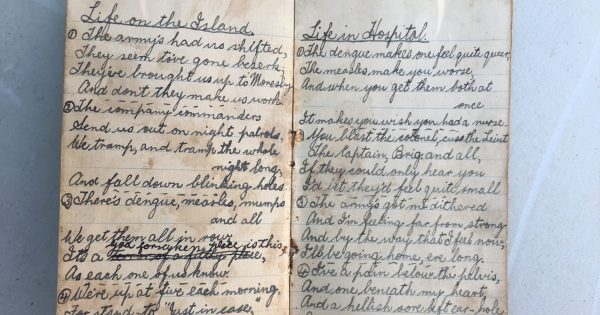 Life on the Island.
① The army's had us shifted,
They seem to've gone beserk,
They've brought us up to Moresby
And don't they make us work.
② The company commanders
Send us out on night patrols,
We tramp, and tramp the whole
night long,
And fall down blinking holes
③ There's dengue, measles, mumps
and all
We get them all in row,
forsaken piece is this,
It's a of a filthy place,
As each one of us know.
④ We're up at five each morning,
For stand-to "just in case,"
Life in Hospital.
① The dengue makes one feel quite queer,
The measles make you worse,
And when you get them both at
once
It makes you wish you had a nurse.
② You blast the colonel, cuss the Lieut
The Captain, Brig and all,
If they could only hear you
I'd bet they'd feel quite small
③ The army's got me dithered
And I'm feeling far from strong
And by the way that I feel now,
I'll be going home, ere long.
④ I've a pain below the pelvis,
And one beneath my heart,
And a hellish sore left ear-hole